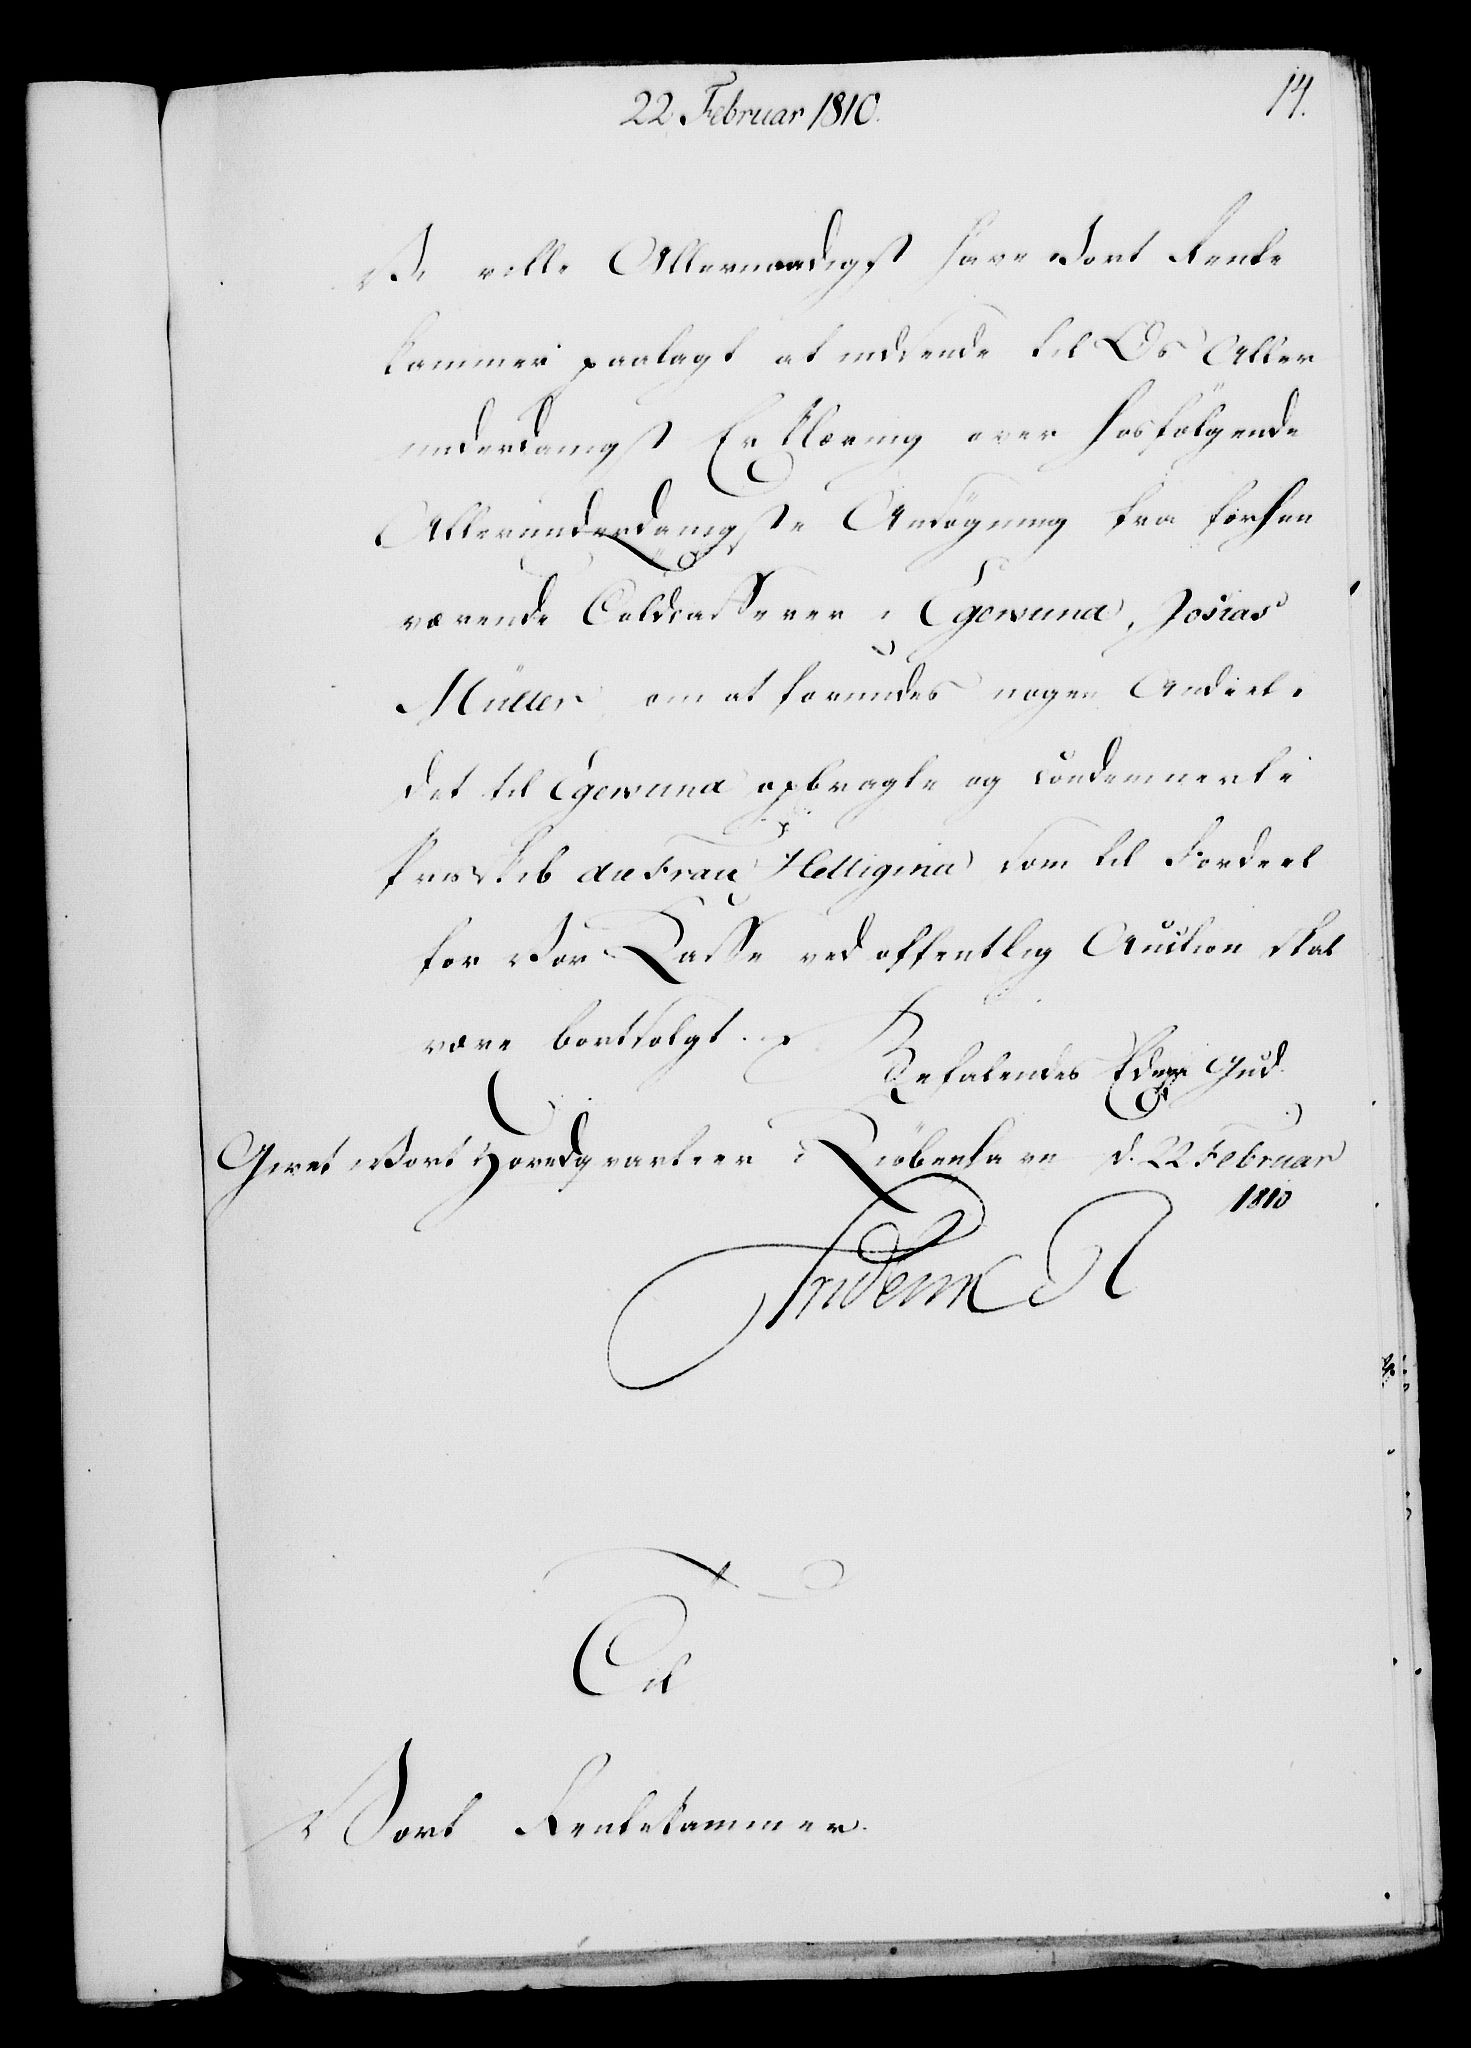 22 Februar 1810.
14.
Vi ville Allernaadigst have Vort Rente
kammer paalagt at indsende til Os Aller
underdanigst Erklæring over hosfølgende
Allerunderdanigste Ansögning fra forhen
værende Toldcasserer i Egersund, Josias
Müller om at forundes nogen Andeel i
det til Egersund opbragte og condemnerte
Skib die Frau som til Fordeel
for Vor Kasse ved offentlig Auction skal
være bortsolgt.
Befalendes Eder Gud
Givet Vort Hovedqvarteer i Kiöbenhavn d. 22 Februar
1810
Friderich R
Til
Vort Rentekammer.